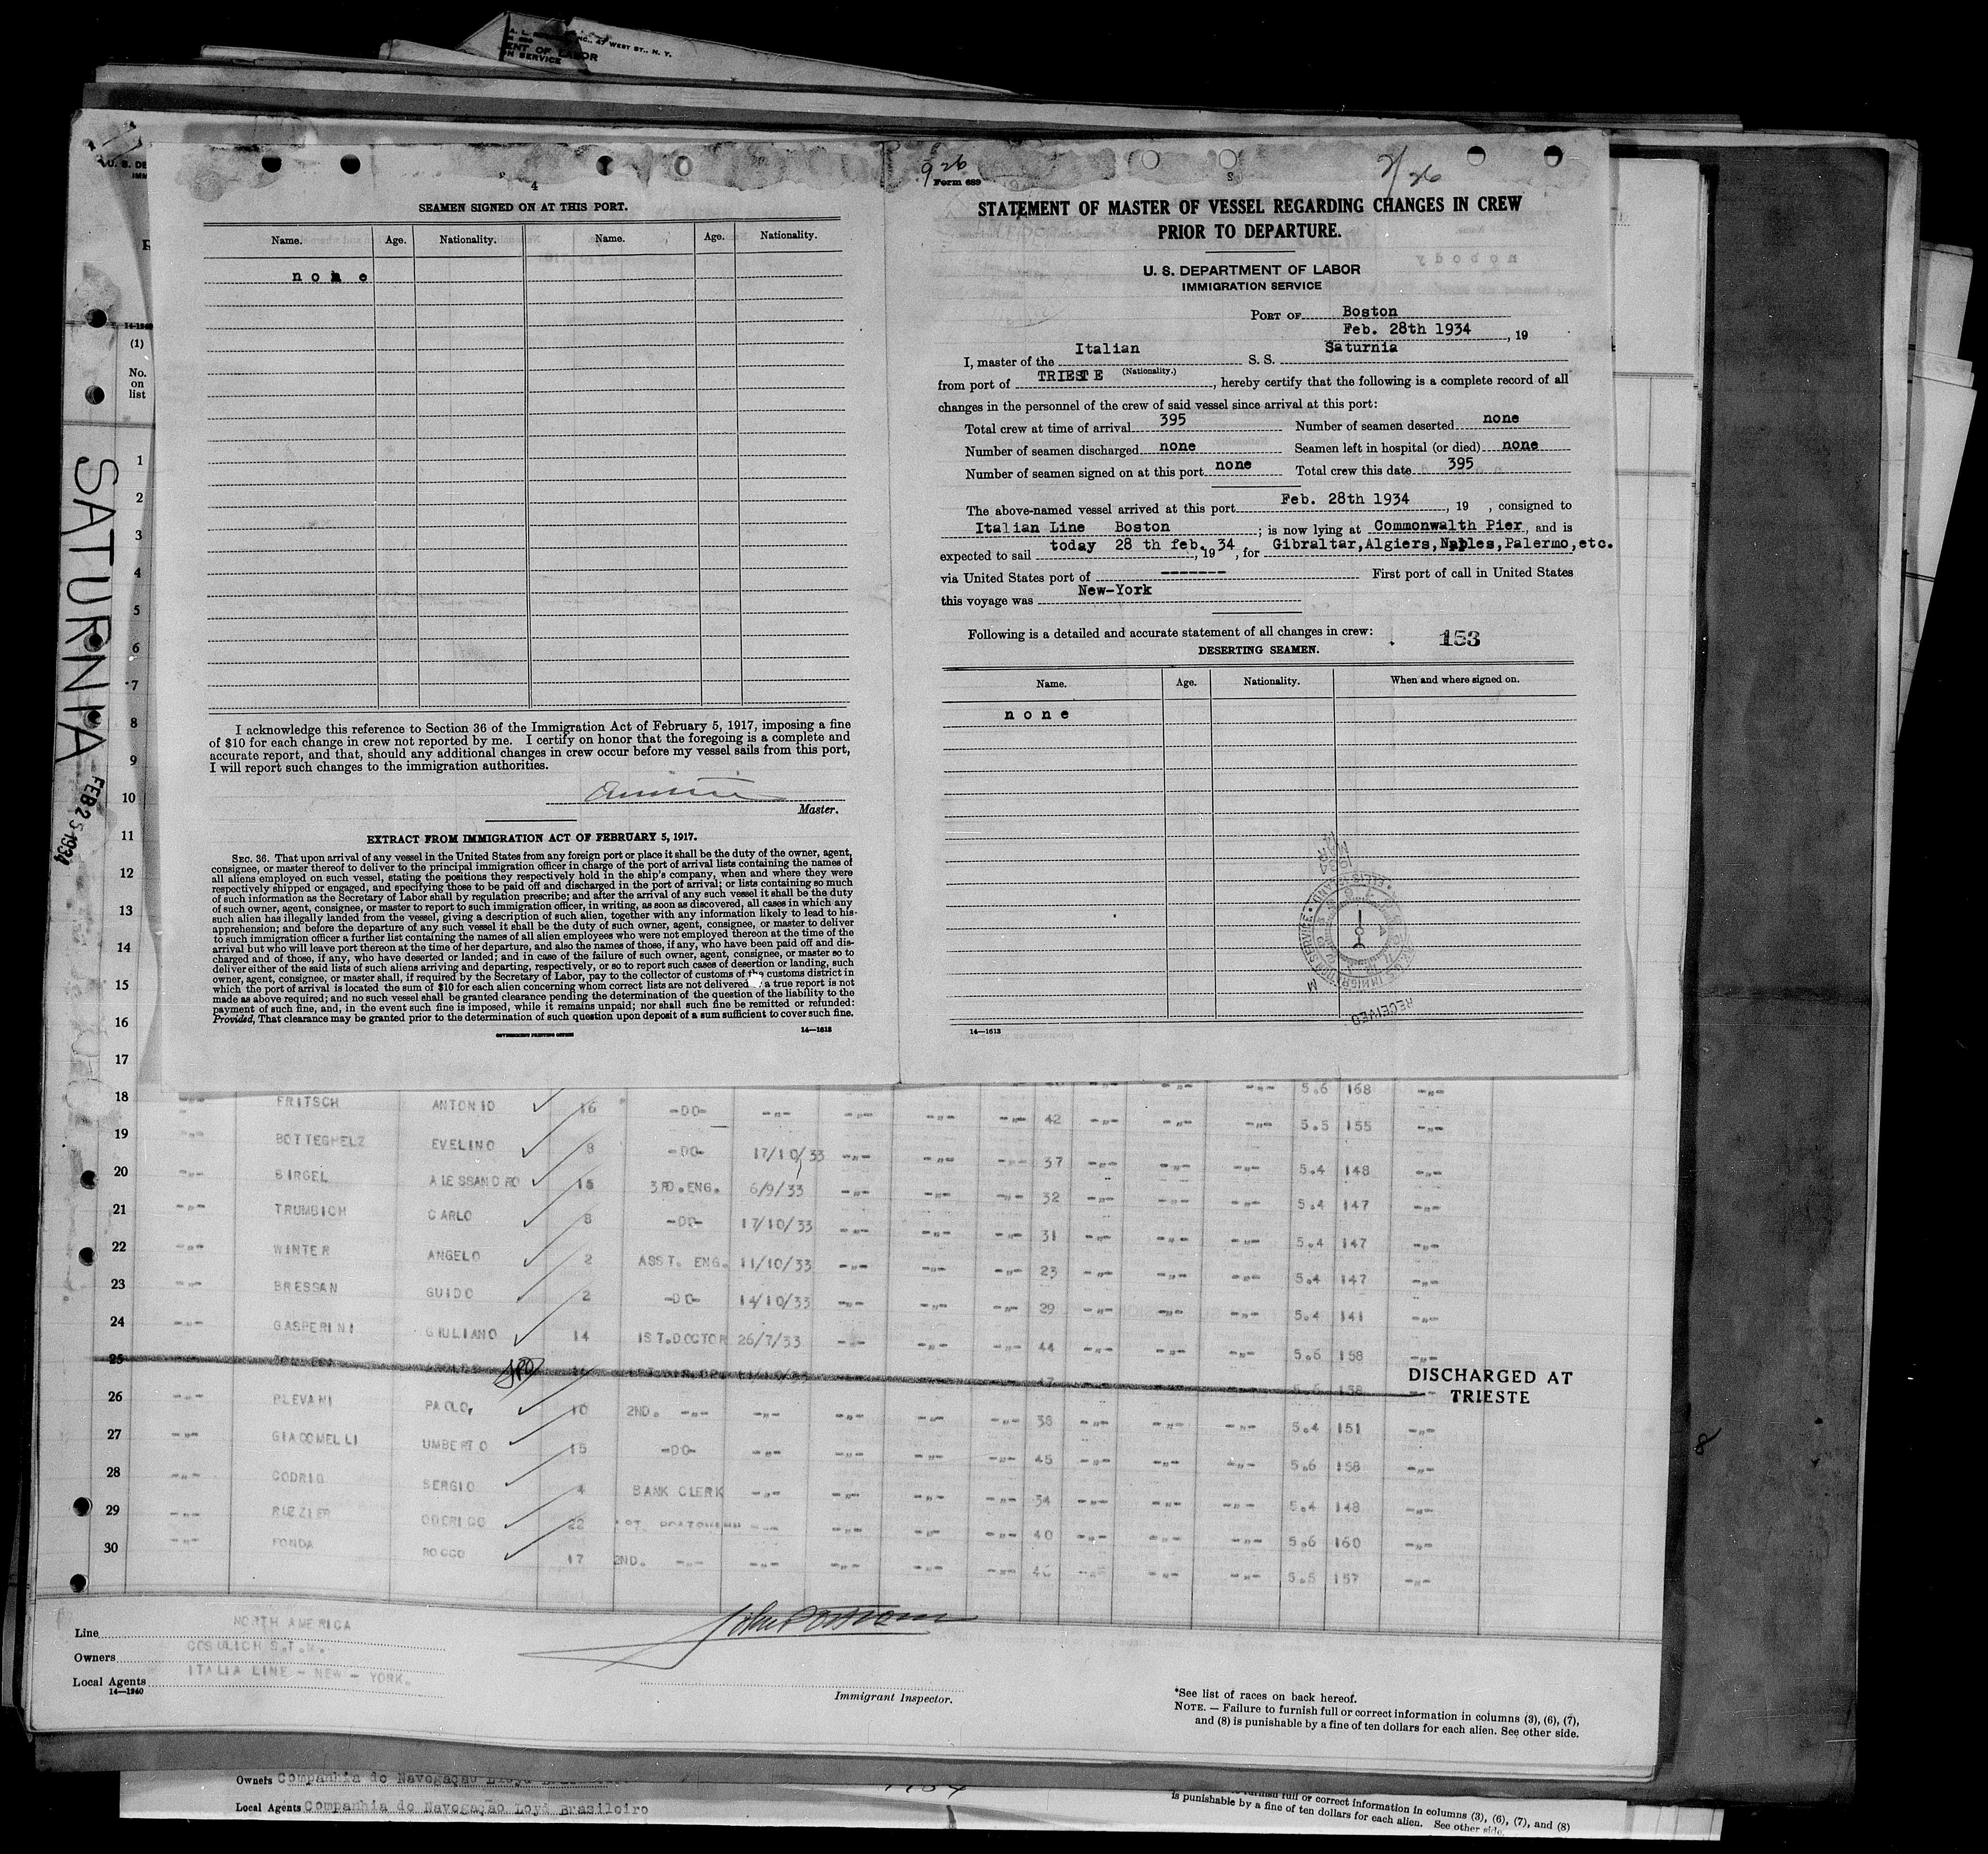 47 WEST ST., N. Y.
ENT OF LABOR
ON SERVICE
4
SEAMEN SIGNED ON AT THIS PORT.
Name. Age. Nationality. Name. Age. Nationality.
none
I acknowledge this reference to Section 36 of the Immigration Act of February 5, 1917, imposing a fine
of $10 for each change in crew not reported by me. I certify on honor that the foregoing is a complete and
accurate report, and that, should any additional changes in crew occur before my vessel sails from this port,
I will report such changes to the immigration authorities.
Master.
EXTRACT FROM IMMIGRATION ACT OF FEBRUARY 5, 1917.
SEC. 36. That upon arrival of any vessel in the United States from any foreign port or place it shall be the duty of the owner, agent,
consignee, or master thereof to deliver to the principal immigration officer in charge of the port of arrival lists containing the names of
all aliens employed on such vessel, stating the positions they respectively hold in the ship's company, when and where they were
respectively shipped or engaged, and specifying those to be paid off and discharged in the port of arrival; or lists containing so much
of such information as the Secretary of Labor shall by regulation prescribe; and after the arrival of any such vessel it shall be the duty
of such owner, agent, consignee, or master to report to such immigration officer, in writing, as soon as discovered, all cases in which any
such alien has illegally landed from the vessel, giving a description of such alien, together with any information likely to lead to his
apprehension; and before the departure of any such vessel it shall be the duty of such owner, agent, consignee, or master to deliver
to such immigration officer a further list containing the names of all alien employees who were not employed thereon at the time of the
arrival but who will leave port thereon at the time of her departure, and also the names of those, if any, who have been paid off and dis-
charged and of those, if any, who have deserted or landed; and in case of the failure of such owner, agent, consignee, or master so to
deliver either of the said lists of such aliens arriving and departing, respectively, or so to report such cases of desertion or landing, such
owner, agent, consignee, or master shall, if required by the Secretary of Labor, pay to the collector of customs of the customs district in
which the port of arrival is located the sum of $10 for each alien concerning whom correct lists are not delivered a true report is not
made as above required; and no such vessel shall be granted clearance pending the determination of the question of the liability to the
payment of such fine, and, in the event such fine is imposed, while it remains unpaid; nor shall such fine be remitted or refunded:
Provided, That clearance may be granted prior to the determination of such question upon deposit of a sum sufficient to cover such fine.
GOVERNMENT PRINTING OFFICE 14—1613
926
Form 689
2/26
STATEMENT OF MASTER OF VESSEL REGARDING CHANGES IN CREW
PRIOR TO DEPARTURE.
U. S. DEPARTMENT OF LABOR
IMMIGRATION SERVICE
PORT OF Boston
Feb. 28th 1934, 19
I, master of the Italian S. S. Saturnia
(Nationality.)
from port of TRIESTE, hereby certify that the following is a complete record of all
changes in the personnel of the crew of said vessel since arrival at this port:
Total crew at time of arrival 395 Number of seamen deserted none
Number of seamen discharged none Seamen left in hospital (or died) none
Number of seamen signed on at this port none Total crew this date 395
The above-named vessel arrived at this port Feb. 28th 1934, 19 , consigned to
Italian Line Boston ; is now lying at Commonwalth Pier, and is
expected to sail today 28 th feb., 19 34, for Gibraltar,Algiers,Naples,Palermo,etc.
via United States port of ------- First port of call in United States
this voyage was New-York
Following is a detailed and accurate statement of all changes in crew: 153
DESERTING SEAMEN.
Name. Age. Nationality. When and where signed on.
none
RECEIVED
14—1613
U. S. DE
IMM
14-1240
(1)
No.
on
list
SATURNIA
FEB 25 1934
1
2
3
4
5
6
7
8
9
10
11
12
13
14
15
16
17
5.6 168 -"-
18 -"- FRITSCH ANTONIO 16 -DO- -"- -"- -"- -"- 42 -"- -"- -"- 5.5 155 -"-
19 -"- BOTTEGHELZ EVELINO 8 -DO- 17/10/33 -"- -"- -"- 37 -"- -"- -"- 5.4 148 -"-
20 -"- BIRGEL ALESSANDRO 15 3RD.ENG. 6/9/33 -"- -"- -"- 32 -"- -"- -"- 5.4 147 -"-
21 -"- TRUMBICH CARLO 8 -DO- 17/10/33 -"- -"- -"- 31 -"- -"- -"- 5.4 147 -"-
22 -"- WINTER ANGELO 2 ASST. ENG. 11/10/33 -"- -"- -"- 23 -"- -"- -"- 5.4 147 -"-
23 -"- BRESSAN GUIDO 2 -DO- 14/10/33 -"- -"- -"- 29 -"- -"- -"- 5.4 141 -"-
24 -"- GASPERINI GIULIANO 14 1ST.DOCTOR 26/7/33 -"- -"- -"- 44 -"- -"- -"- 5.6 158 -"-
25 DISCHARGED AT
TRIESTE
26 -"- PLEVANI PAOLO, 10 2ND. -"- -"- -"- -"- -"- 38 -"- -"- -"- 5.4 151 -"-
27 -"- GIACOMELLI UMBERTO 15 -DO- -"- -"- -"- -"- 45 -"- -"- -"- 5.6 158 -"-
28 -"- CODRIG SERGIO 4 BANK CLERK -"- -"- -"- -"- 34 -"- -"- -"- 5.4 148 -"-
29 -"- RUZZIER ODERIGO 22 -"- -"- -"- -"- 40 -"- -"- -"- 5.6 160 -"-
30 -"- FONDA ROCCO 17 2ND. -"- -"- -"- -"- -"- -"- -"- -"- 5.5 157 -"-
Line NORTH AMERICA
Owners COSULICH S.T.N.
Local Agents ITALIA LINE - NEW - YORK.
14—1240
Immigrant Inspector.
*See list of races on back hereof.
NOTE. — Failure to furnish full or correct information in columns (3), (6), (7),
and (8) is punishable by a fine of ten dollars for each alien. See other side.
8
Owners Companhia do Navogação
Local Agents Companhia do Navogação Loyd Brasileiro
full or correct information in columns (3), (6), (7), and (8)
is punishable by a fine of ten dollars for each alien. See other side.